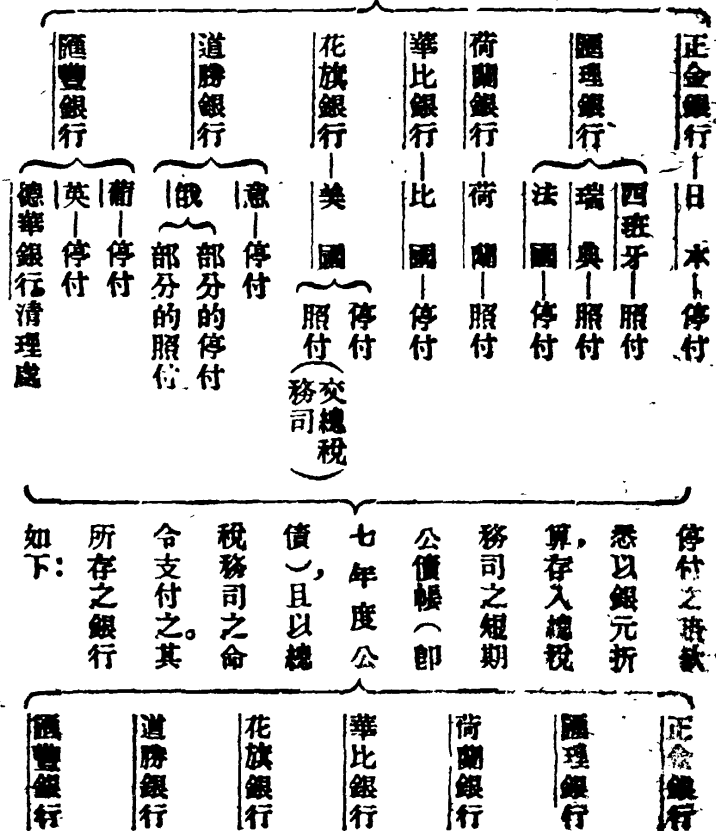 正金銀行—日本—停付
匯理銀行
西班牙—照付
瑞典—照付
法國—停付
荷蘭銀行—荷蘭—照付
華比銀行—比國—停付
花旗銀行—美國
停付
照付(交總稅務司)
道勝銀行
意—停付
俄
部分的停付
部分的照付
匯豐銀行
葡—停付
英—停付
德華銀行清理處
停付之賠款
悉以銀元折
算,存入總稅
務司之短期
公債帳(卽
七年度公
債),且以總
稅務司之命
令支付之。其
所存之銀行
如下:
正金銀行
匯理銀行
荷蘭銀行
華比銀行
花旗銀行
道勝銀行
匯豐銀行